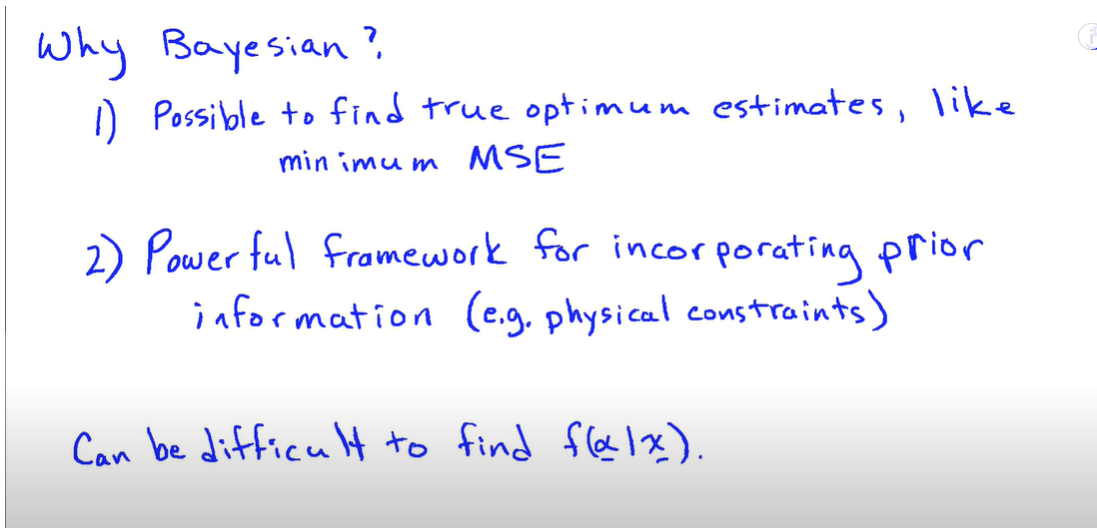 Why Bayesian?
1) Possible to find true optimum estimates, like
minimum MSE
2) Powerful framework for incorporating prior
information (e.g. physical constraints)
Can be difficult to find f(α|x).